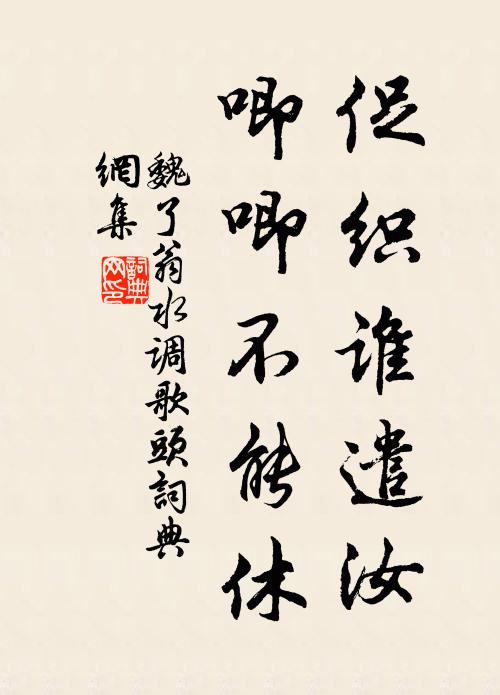 促织谁遣汝
唧唧不能休
魏了翁水调歌頭詞典
網集
詞典
网印